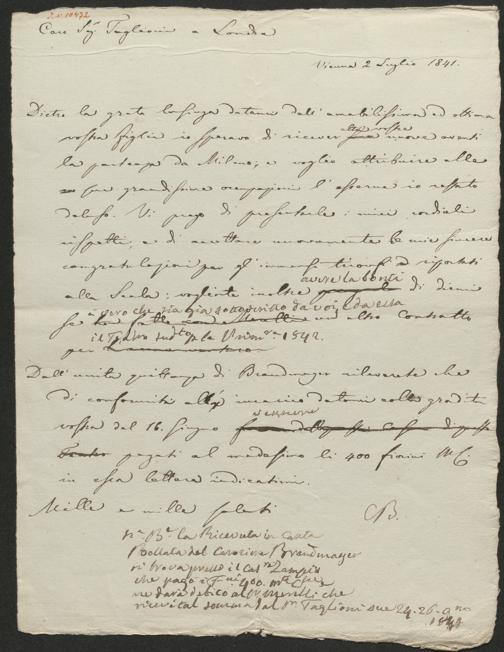 I.N. 10472
Caro Sig. Taglioni a Londra
Vienna 2 Luglio 1841.
Dietro la grata lusinga datami dall'amabilissima ed ottima
vostra figlia io sperava di ricever altre vostre nuove avanti
la partenza da Milano; e voglio attribuire alle
sue grandissime occupazioni l'esserne io restato
deluso. Vi prego di presentarle i miei cordiali
rispetti, e di accettare nuovamente le mie sincere
congratulazioni per gl'immensi trionfi riportati
alla Scala: vogliate inoltre avere la bontà di dirmi
se è vero che sia già sottoscritto da voi e da essa
un altro contratto
per il Teatro sud.to p. la Primav.a 1842.
Dall'unita quittanza di Brandmayer rileverete che
di conformità all' incarico datomi colla gradita
vostra del 16. Giugno
pagati al medesimo li 400 fiorini M.C.
in essa lettera indicatimi.
Mille e mille saluti
CB.
N.a B.e la Ricevuta in Carta
Bollata del Brandmayer
si trova presso il
che pagò i 400. che
ne darà debito al Merelli che
riceverà tal somma dal Taglioni